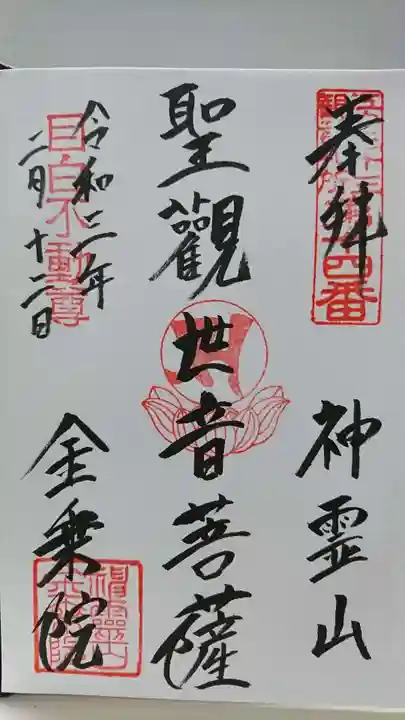 奉拝
四番
神霊山
聖觀世音菩薩
令和二年
二月十二日
目白不動尊
金乗院